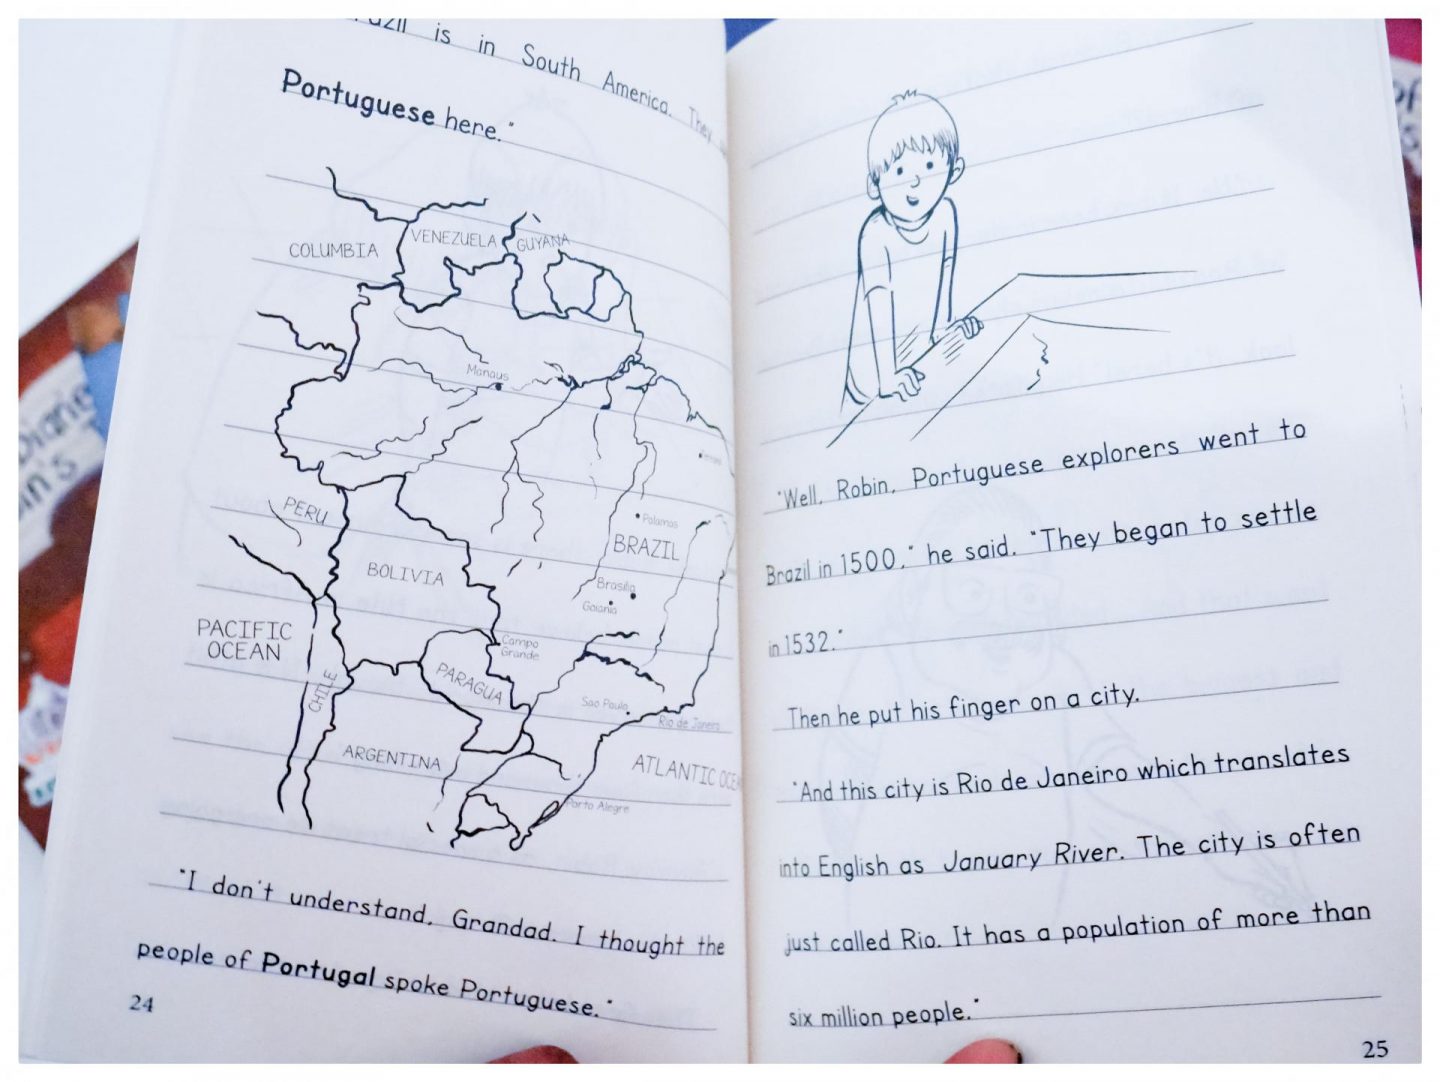 is in South America. They
Portuguese here."
COLUMBIA
VENEZUELA
GUYANA
Manaus
PERU
Palamas
BRAZIL
BOLIVIA
Brasilia
Goiania
PACIFIC
OCEAN
Campo
Grande
PARAGUA
CHILE
Sao Paulo
Rio de Janeiro
ARGENTINA
ATLANTIC
Porto Alegre
"I don't understand, Grandad. I thought the
people of Portugal spoke Portuguese."
24
"Well, Robin, Portuguese explorers went to
Brazil in 1500," he said. "They began to settle
in 1532."
Then he put his finger on a city.
"And this city is Rio de Janeiro which translates
into English as January River. The city is often
just called Rio. It has a population of more than
six million people."
25